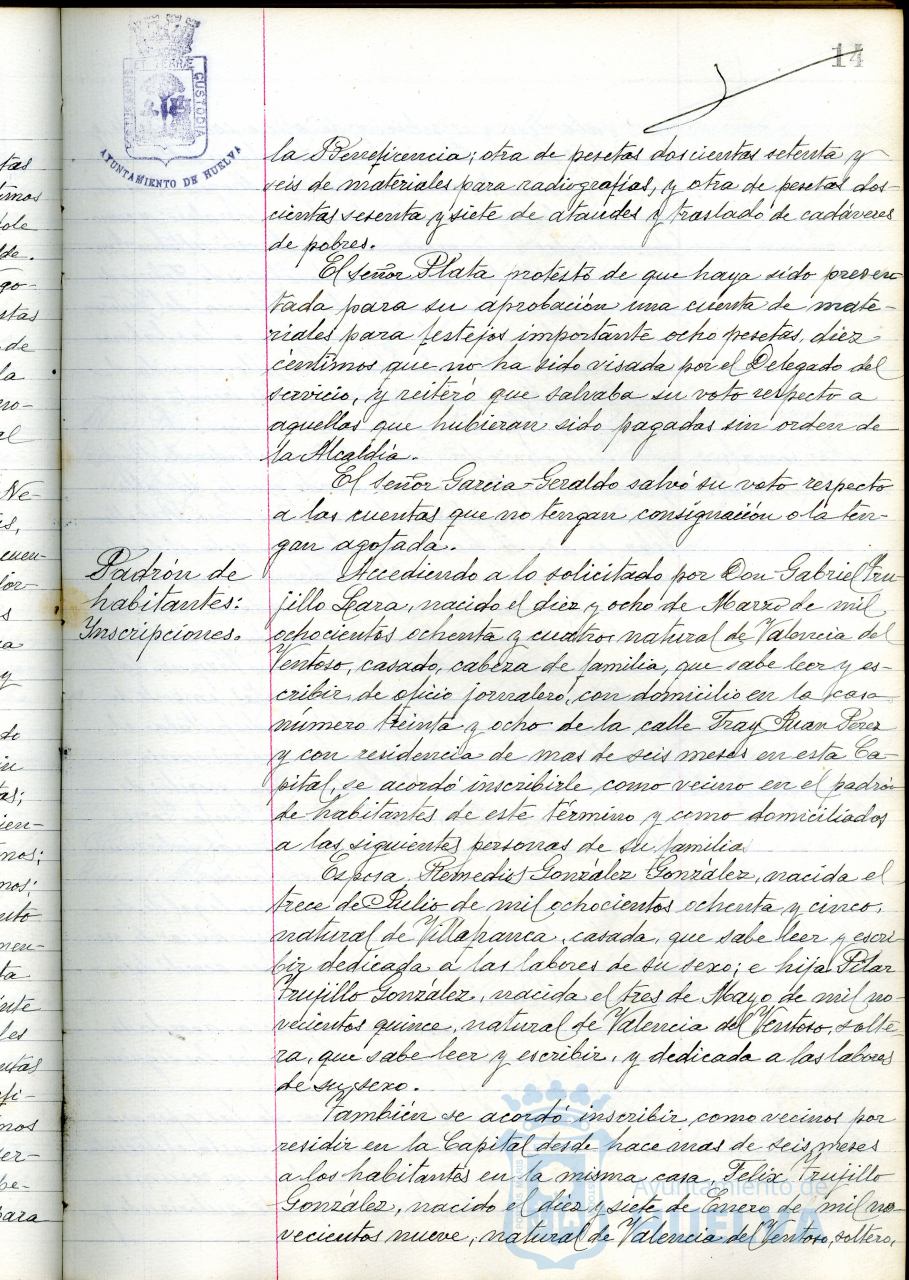 14
ET TERRÆ
CUSTODIA
AYUNTAMIENTO DE HUELVA
la Beneficencia; otra de pesetas doscientas setenta y
seis de materiales para radiografías, y otra de pesetas dos-
cientas sesenta y siete de ataudes y traslado de cadáveres
de pobres.
El señor Plata protestó de que haya sido presen-
tada para su aprobación una cuenta de mate-
riales para festejos importante ocho pesetas, diez
céntimos que no ha sido visada por el Delegado del
servicio, y reiteró que salvaba su voto respecto a
aquellas que hubieran sido pagadas sin orden de
la Alcaldía.
El señor Garcia-Geraldo salvó su voto respecto
a las cuentas que no tengan consignación o la ten-
gan agotada.
Padrón de
habitantes:
Inscripciones.
Accediendo a lo solicitado por Don Gabriel Tru-
jillo Lara, nacido el diez y ocho de Marzo de mil
ochocientos ochenta y cuatro, natural de Valencia del
Ventoso, casado, cabeza de familia, que sabe leer y es-
cribir, de oficio jornalero, con domicilio en la casa
número treinta y ocho de la calle Fray Juan Perez
y con residencia de mas de seis meses en esta Ca-
pital, se acordó inscribirle como vecino en el padrón
de habitantes de este término y como domiciliados
a las siguientes personas de su familia
Esposa Remedios González González, nacida el
trece de Julio de mil ochocientos ochenta y cinco,
natural de Villafranca, casada, que sabe leer y escri-
bir dedicada a las labores de su sexo; e hija Pilar
Trujillo González, nacida el tres de Mayo de mil no-
vecientos quince, natural de Valencia del Ventoso, solte-
ra, que sabe leer y escribir, y dedicada a las labores
de su sexo.
También se acordó inscribir como vecinos por
residir en la Capital desde hace mas de seis meses
a los habitantes en la misma casa Felix Trujillo
González, nacido el diez y siete de Enero de mil no-
vecientos nueve, natural de Valencia del Ventoso, soltero,
Ayuntamiento de
HUELVA